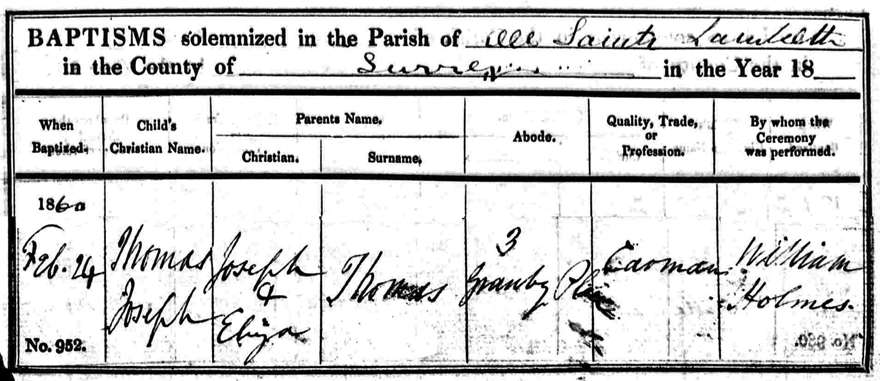 BAPTISMS solemnized in the Parish of All Saints Lambeth
in the County of Surrey in the Year 18
When Baptized.
Child's Christian Name.
Parents Name.
Christian.
Surname.
Abode.
Quality, Trade, or Profession.
By whom the Ceremony was performed.
1860
Feb. 24
Thomas
Joseph
Joseph
&
Eliza
Thomas
3
Granby
Carman
William
Holmes.
No. 952.
No 950.